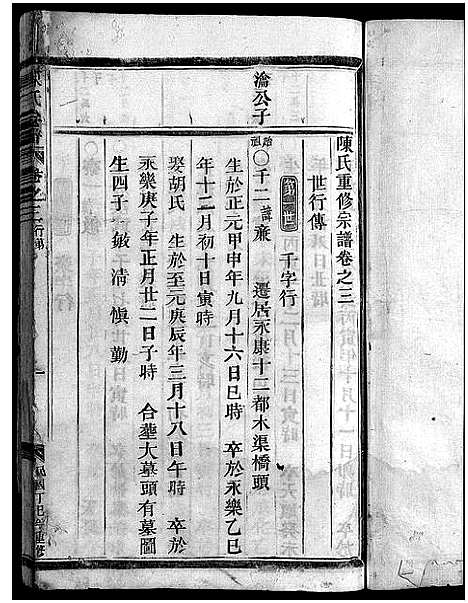 陳氏重修宗譜卷之三
世行傳
第一世 千字行
瀹公子
始祖○千二 諱濂 遷居永康十二都木渠橋頭
生於正元甲申年九月十六日巳時 卒於永樂乙巳
年十二月初十日寅時
娶胡氏 生於至元庚辰年三月十八日午時 卒於
永樂庚子年正月廿二日子時 合葬大墓頭有墓圖
生四子 敏 清 愼 勤